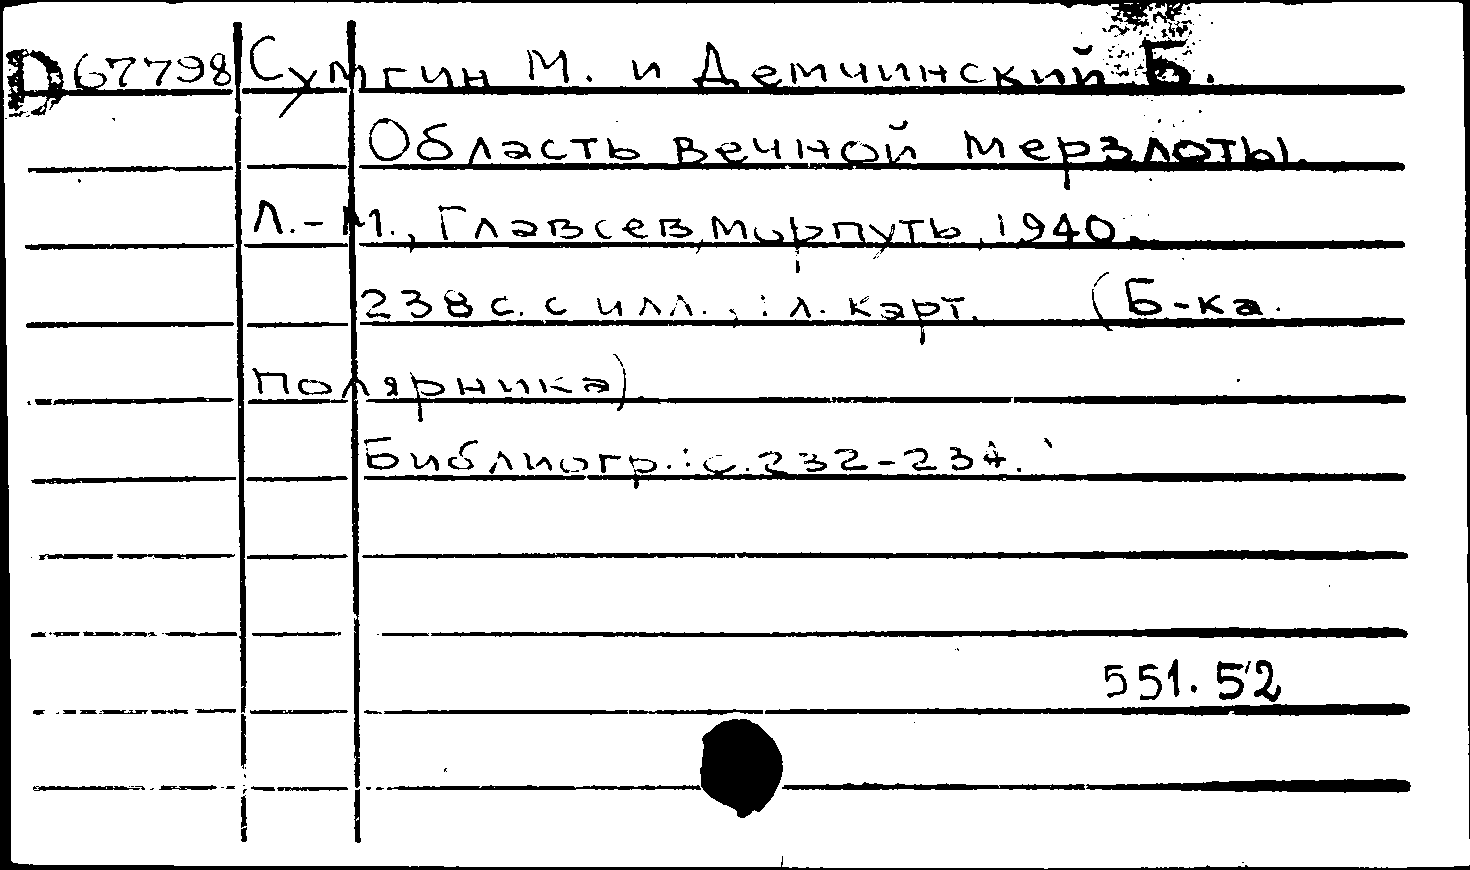 D 67798 Сумгин М. и Демчинский Б.
Область вечной мерзлоты.
Л.-М., Главсевморпуть, 1940.
238 с. с илл., : л. карт. (Б-ка
полярника)
Библиогр.: с. 232-237.
551.52